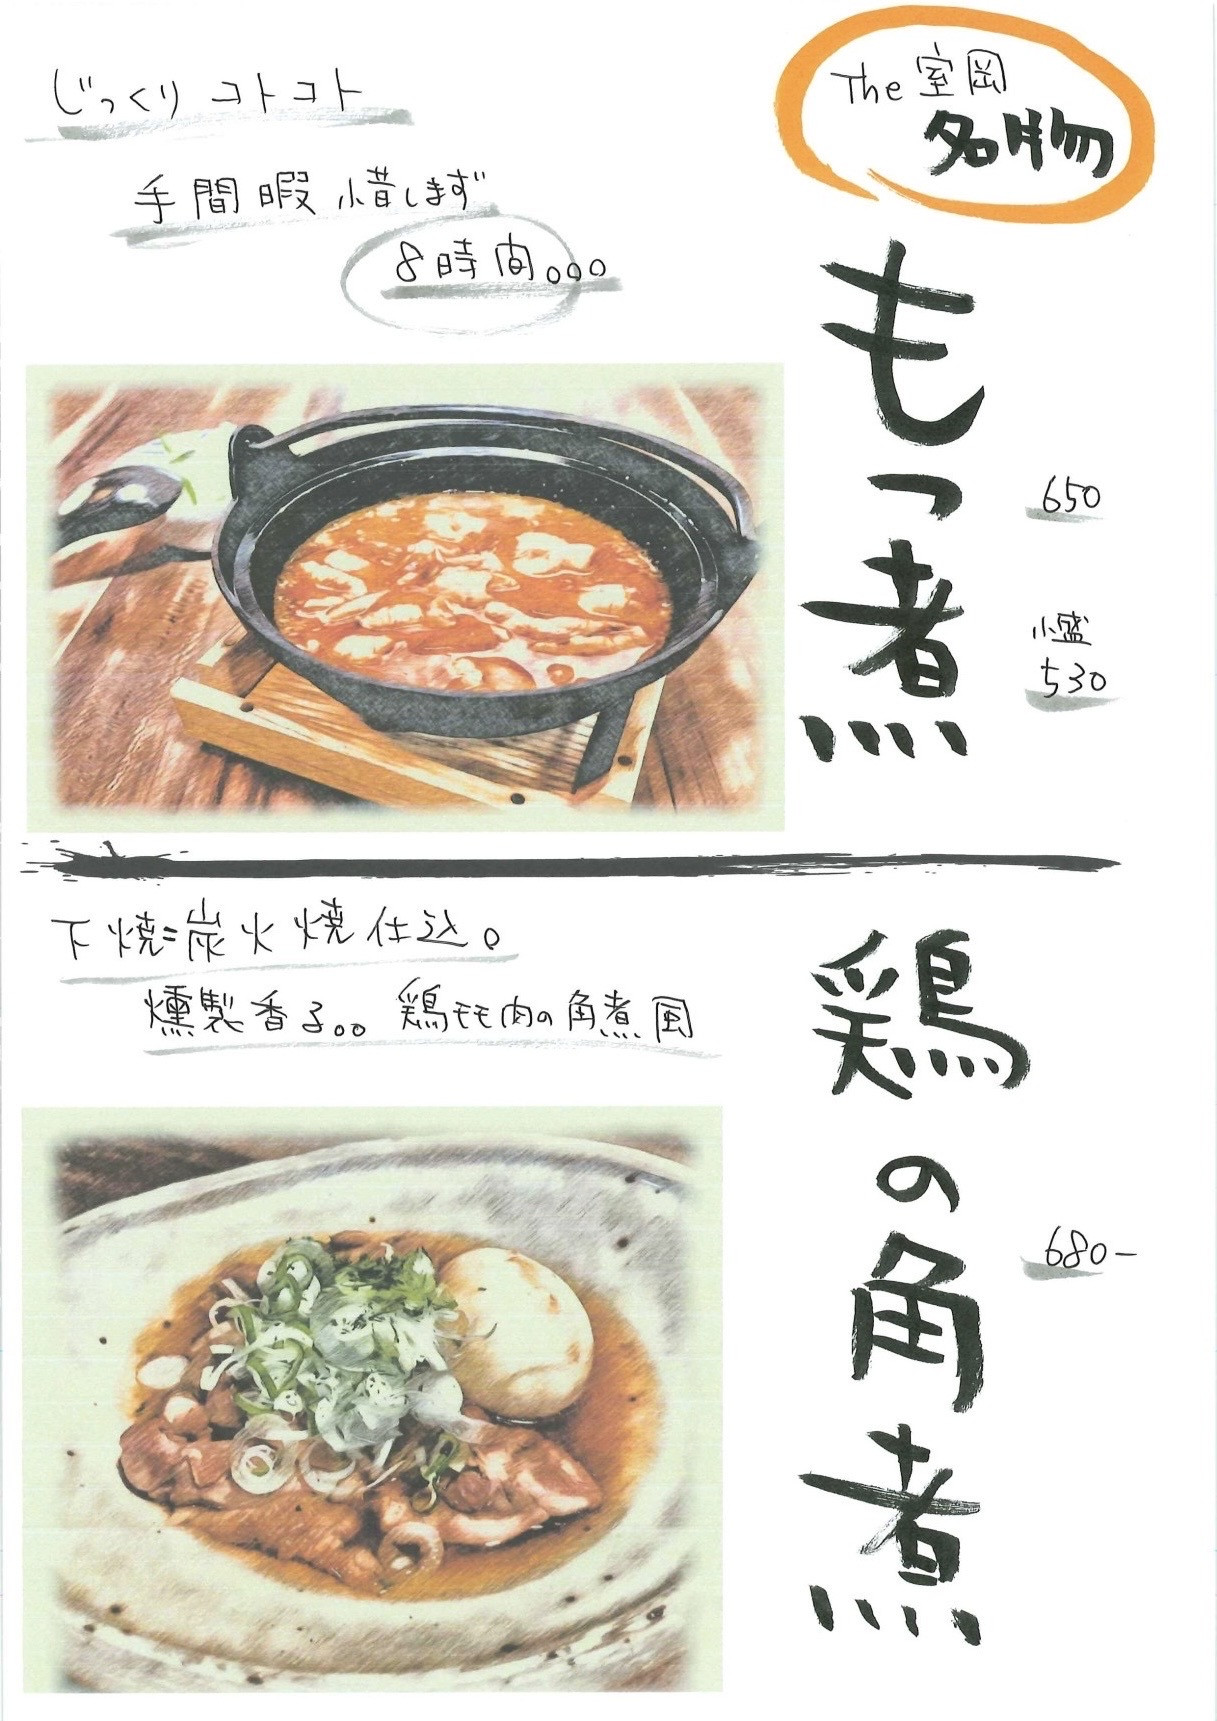 The 室岡
名物
もつ煮
650
小盛
530
じっくり コトコト
手間暇 惜しまず
8時間。。。
鶏の角煮
680-
下焼=炭火焼仕込。
燻製香る。。鶏モモ肉の角煮風